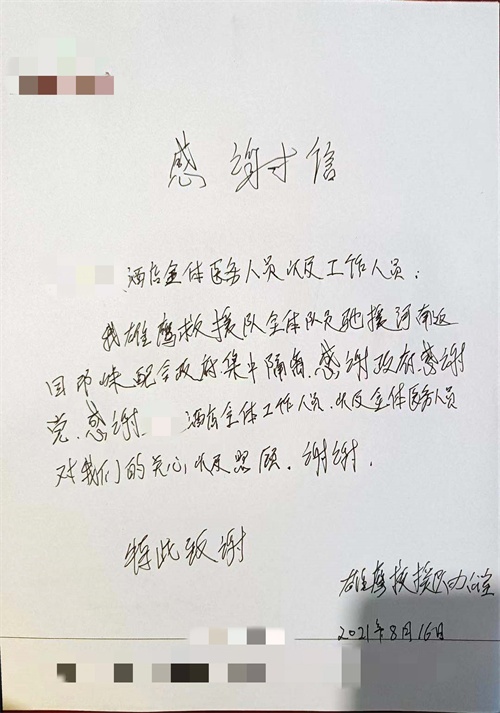 感谢信
酒店全体医务人员以及工作人员：
我雄鹰救援队全体队员驰援河南返
回 配合政府集中隔离、感谢政府感谢
党、感谢 酒店全体工作人员、以及全体医务人员
对我们的关心以及照顾、谢谢、
特此致谢
雄鹰救援队办公室
2021年8月16日